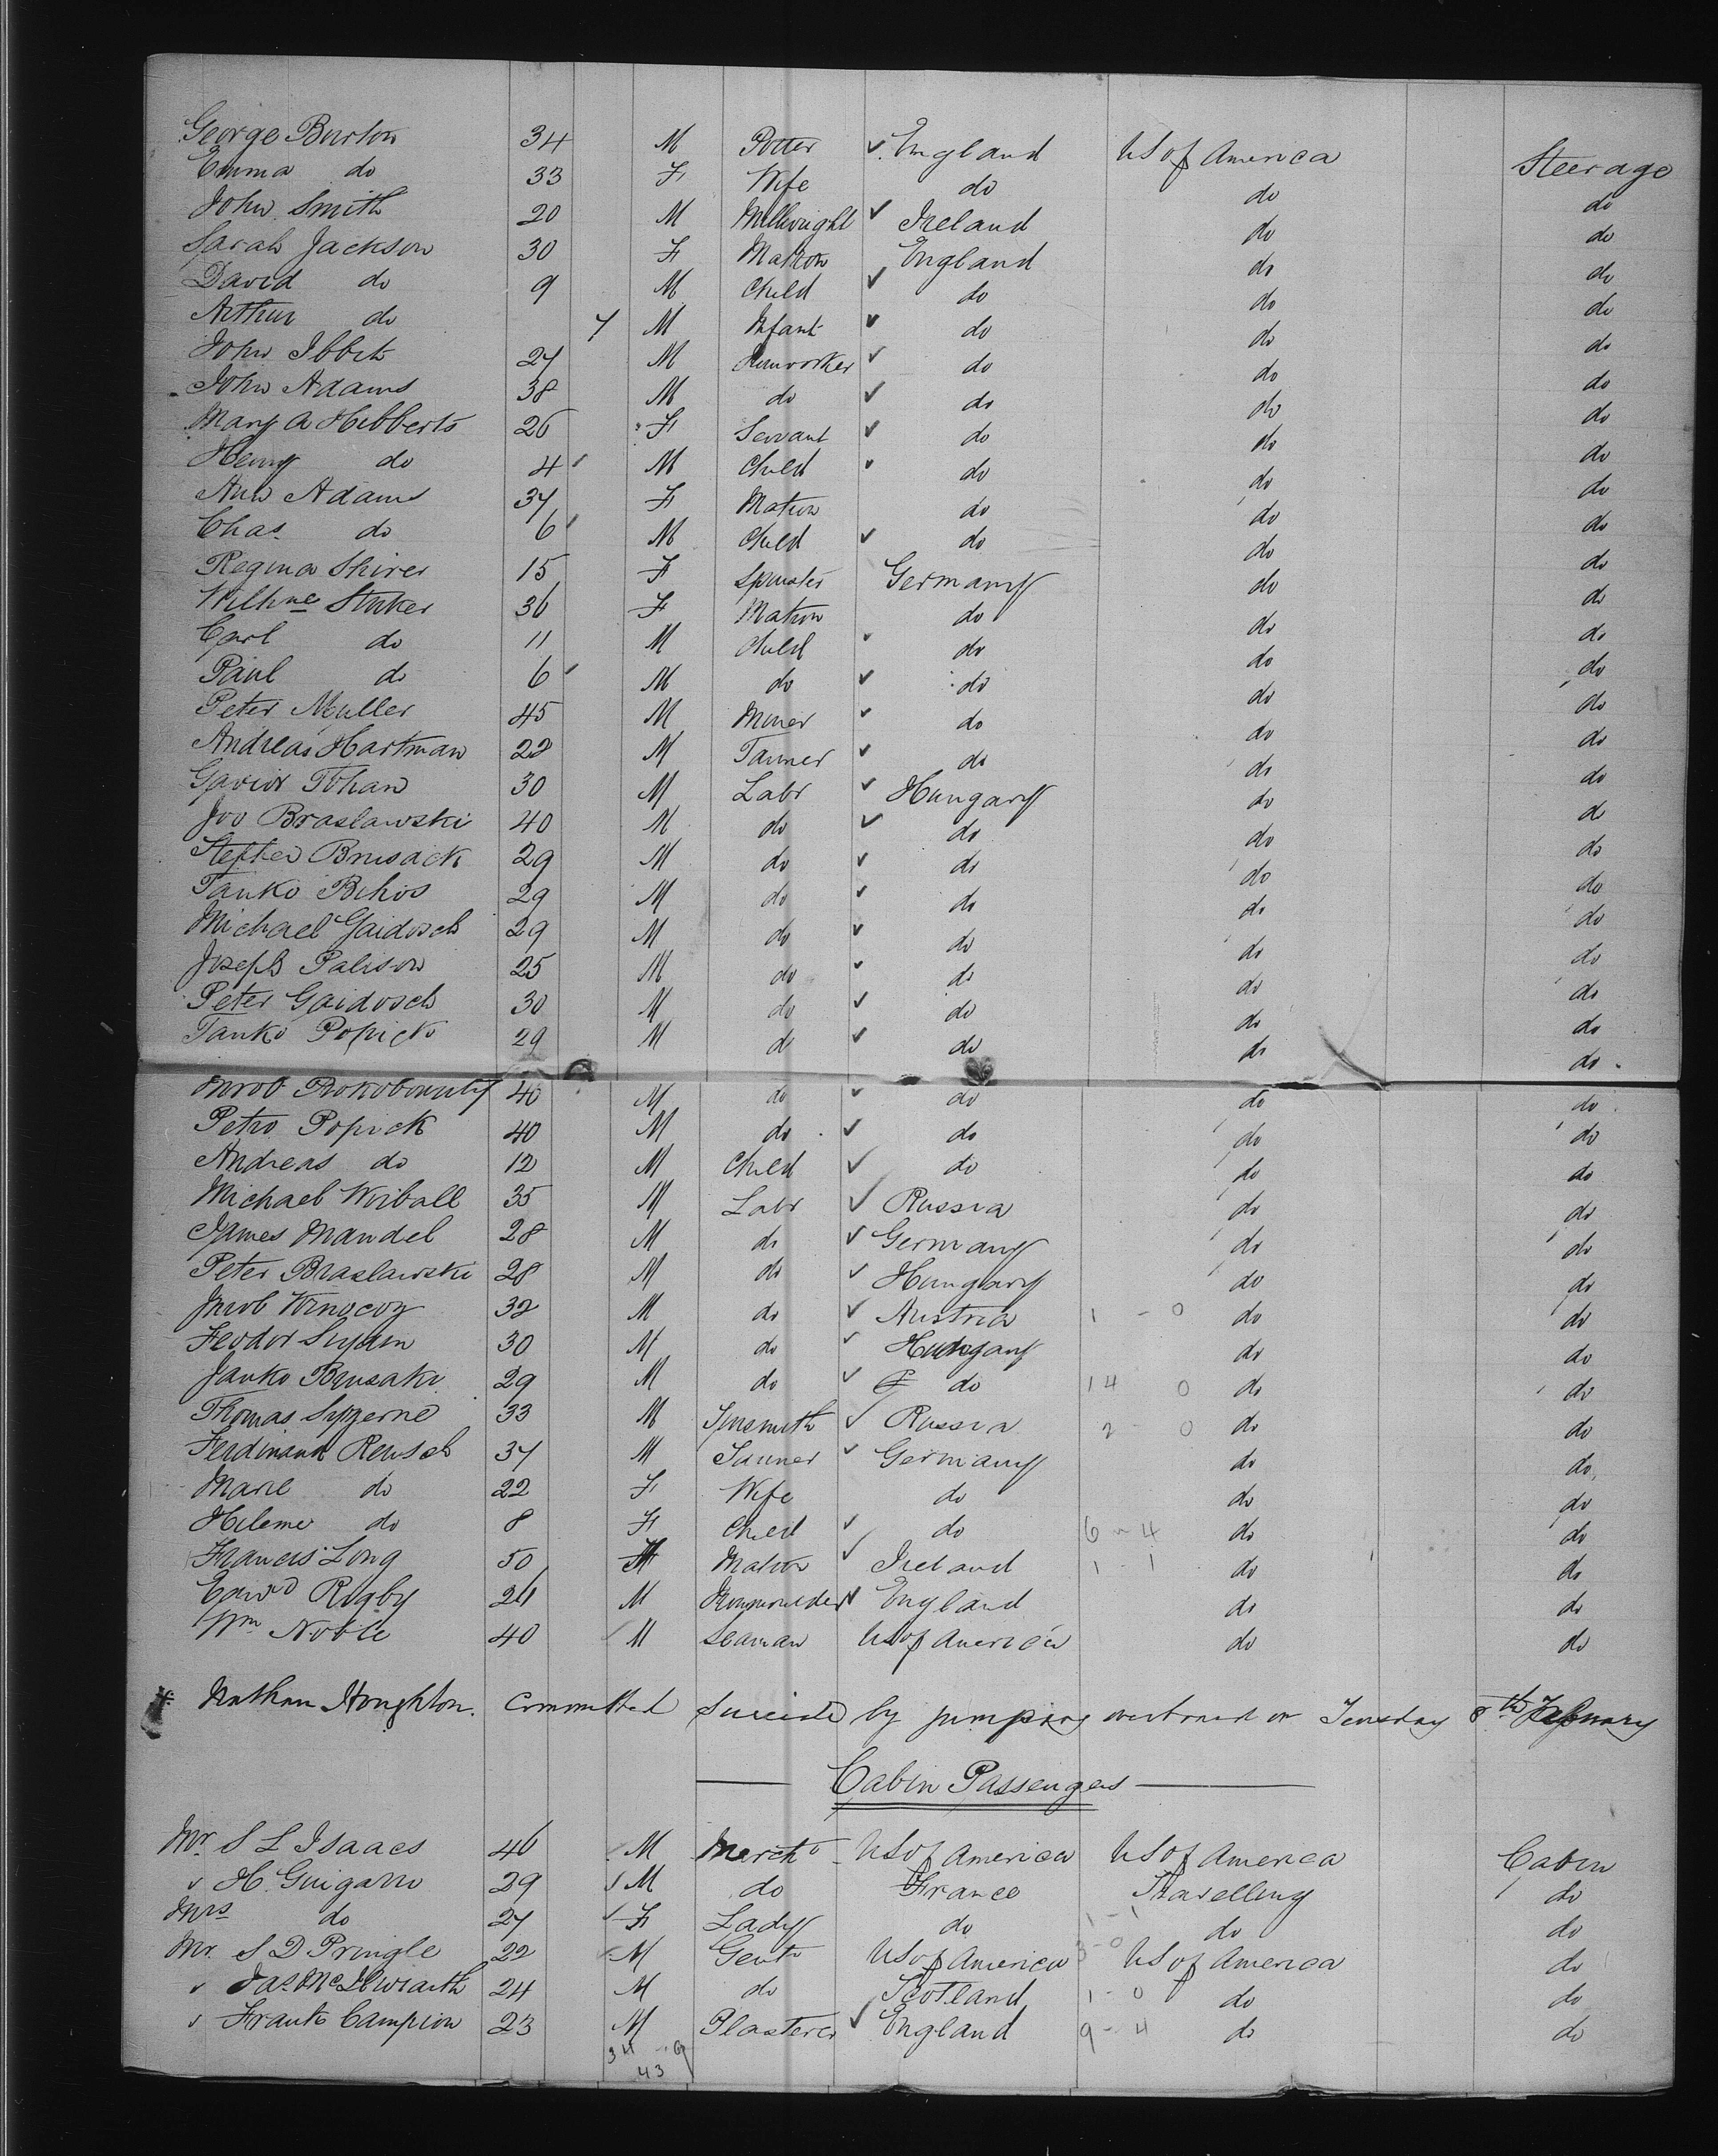 George Burton 34 M Potter ✓ England US of America Steerage
Emma do 33 F Wife do do do
John Smith 20 M Millwright ✓ Ireland do do
Sarah Jackson 30 F Matron England do do
David do 9 M Child ✓ do do do
Arthur do 7 M Infant ✓ do do do
John Ibbet 27 M ✓ do do do
John Adams 38 M do ✓ do do do
Mary A Hibberts 26 F Servant ✓ do do do
Henry do 4 M Child ✓ do do do
Ann Adams 37 F Matron do do do
Chas do 6 M Child ✓ do do do
Regina Shirer 15 F Spinster Germany do do
Wilhne Stuker 36 F Matron do do do
Carl do 11 M Child ✓ do do do
Paul do 6 M do ✓ do do do
Peter Muller 45 M Miner ✓ do do do
Andreas Hartman 22 M Tanner ✓ do do do
Tohan 30 M Labr ✓ Hungary do do
Jvo Braslawski 40 M do ✓ do do do
Brusack 29 M do ✓ do do do
Tanko Bihos 29 M do ✓ do do do
Michael Gaidosch 29 M do ✓ do do do
Joseph Palison 25 M do ✓ do do do
Peter Gaidosch 30 M do ✓ do do do
Tanko Popick 29 M do ✓ do do do
40 M do ✓ do do do
Petro Popick 40 M do ✓ do do do
Andreas do 12 M Child ✓ do do do
Michael Woiball 35 M Labr ✓ Russia do do
James Mandel 28 M do ✓ Germany do do
Peter Braslawski 28 M do ✓ Hungary do do
32 M do ✓ Austria 1 - 0 do do
Feodor 30 M do ✓ Hungary do do
Janko Brusaki 29 M do ✓ do 14 0 do do
Thomas 33 M Tinsmith ✓ Russia 2 - 0 do do
Ferdinand Reusch 37 M Tanner ✓ Germany do do
Marie do 22 F Wife do do do
Hileme do 8 F Child ✓ do 6 - 4 do do
Francis Long 50 Matron ✓ Ireland 1 - 1 do do
Edwd Rigby 26 M Ironmoulder ✓ England do do
Wm Noble 40 M Seaman US of America do do
* Nathan Houghton. Committed suicide by jumping overboard on Tuesday 8th February
Cabin Passengers
Mr. S L Isaacs 46 M Mercht US of America US of America Cabin
" H. Guigarro 29 ✓ M do France Travelling do
Mrs do 27 ✓ F Lady do 1 - 1 do do
Mr. S D Pringle 22 M Gent US of America 3 - 0 US of America do
" Jas McIlwraith 24 M do Scotland 1 - 0 do do
" Frank Campion 23 M Plasterer ✓ England 9 - 4 do do
34 - 9
43